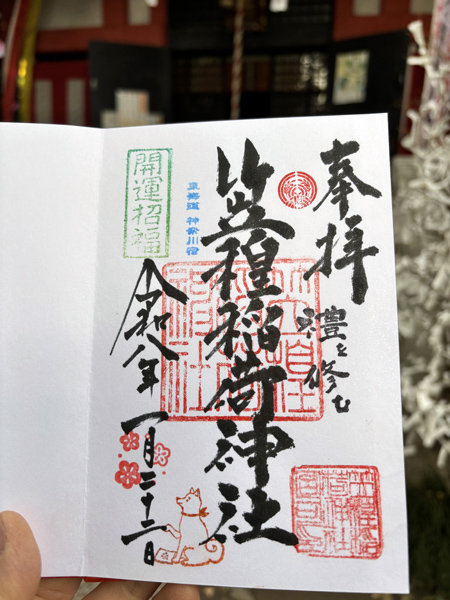 奉拝
禮を修む
笠䅣稲荷神社
東海道 神奈川宿
開運招福
令和八年
一月二十二日